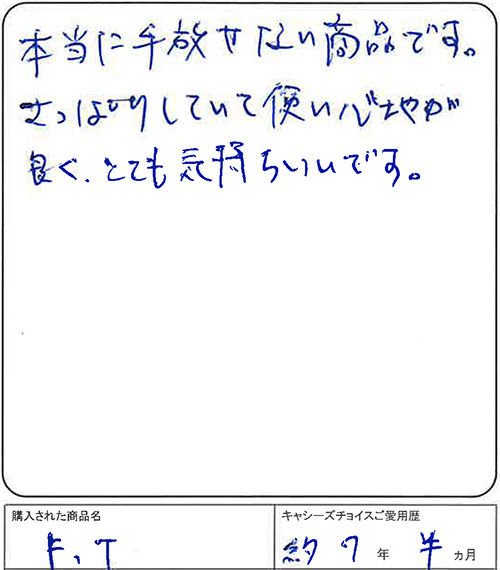 本当に手放せない商品です。
さっぱりしていて使い心地が
良く、とても気持ちいいです。
購入された商品名
キャシーズチョイスご愛用歴
F、T
約7年 半ヵ月